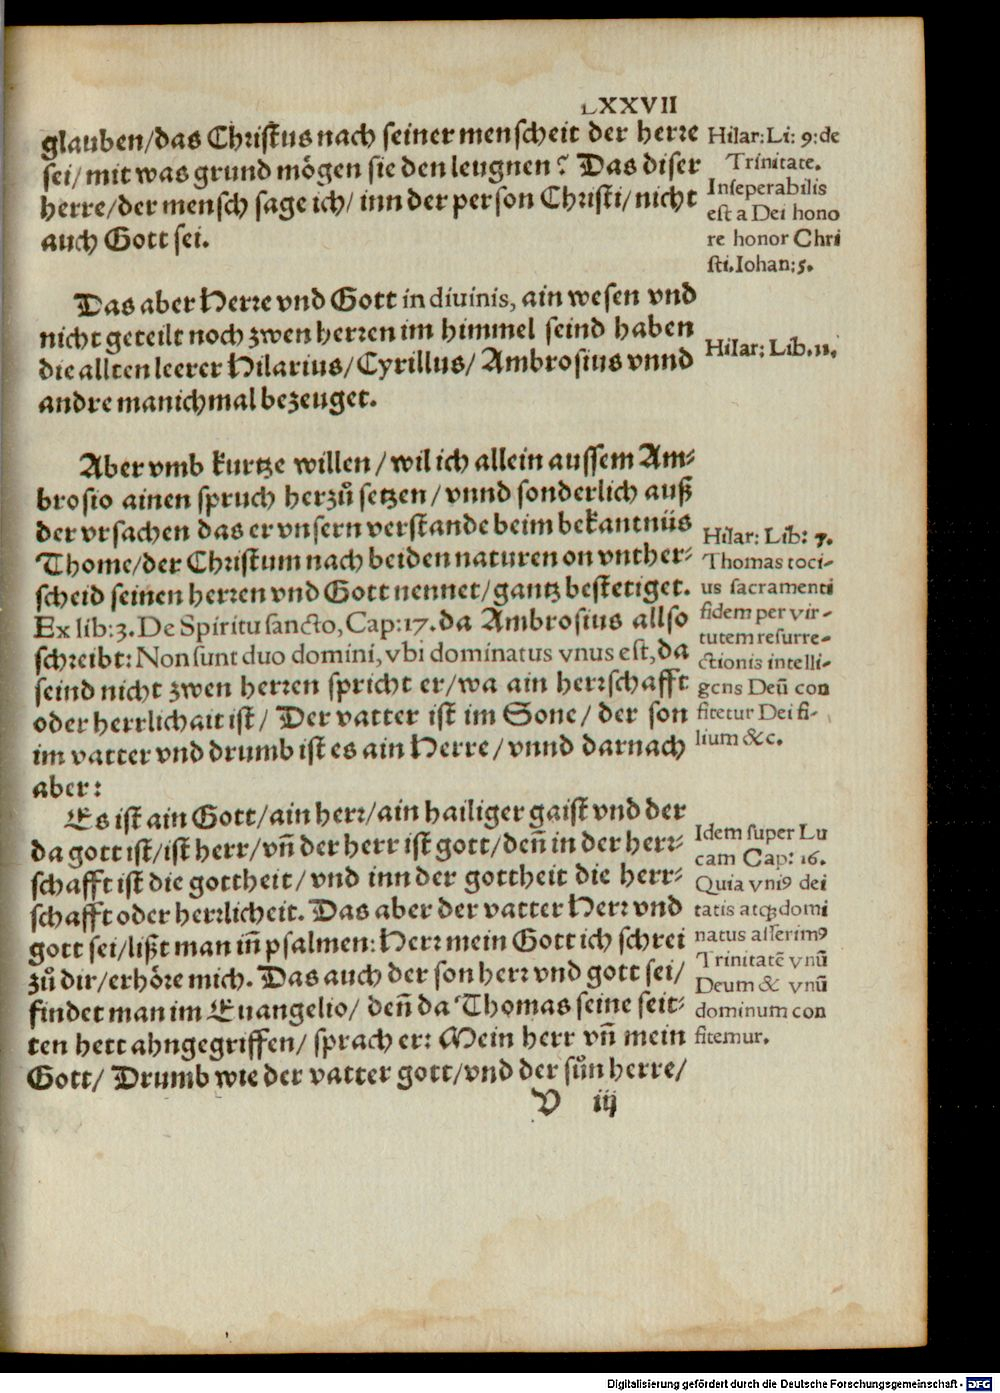 LXXVII
glauben/das Christus nach seiner menscheit der herre
sei/ mit was grund mögen sie den leugnen? Das diser
herre/der mensch sage ich/ inn der person Christi/ nicht
auch Gott sei.
Hilar: Li: 9: de
Trinitate.
Inseperabilis
est a Dei hono
re honor Chri
sti. Iohan: 5.
Das aber Herre vnd Gott in diuinis, ain wesen vnd
nicht geteilt noch zwen herren im himmel seind haben
die allten leerer Hilarius/Cyrillus/ Ambrosius vnnd
andre manichmal bezeuget.
Hilar: Lib. 11.
Aber vmb kurtze willen/wil ich allein aussem Am-
brosio ainen spruch herzů setzen/vnnd sonderlich auß
der vrsachen das er vnsern verstande beim bekantnüs
Thome/der Christum nach beiden naturen on vnther-
scheid seinen herren vnd Gott nennet/gantz bestetiget.
Ex lib: 3. De Spiritu sancto, Cap: 17. da Ambrosius allso
schreibt: Non sunt duo domini, vbi dominatus vnus est, da
seind nicht zwen herren spricht er/wa ain herrschafft
oder herrlichait ist/ Der vatter ist im Sone/ der son
im vatter vnd drumb ist es ain Herre/vnnd darnach
aber:
Hilar: Lib: 7.
Thomas toci-
us sacramenti
fidem per vir-
tutem resurre-
ctionis intelli-
gens Deū con
fitetur Dei fi-
lium &c.
Es ist ain Gott/ain herr/ain hailiger gaist vnd der
da gott ist/ist herr/vñ der herr ist gott/deñ in der herr-
schafft ist die gottheit/ vnd inn der gottheit die herr-
schafft oder herrlicheit. Das aber der vatter Herr vnd
gott sei/lißt man iñ psalmen: Herr mein Gott ich schrei
zů dir/erhöre mich. Das auch der son herr vnd gott sei/
findet man im Euangelio/ deñ da Thomas seine seit-
ten hett ahngegriffen/ sprach er: Mein herr vñ mein
Gott/ Drumb wie der vatter gott/vnd der sůn herre/
Idem super Lu
cam Cap: 16.
Quia vniꝰ dei
tatis atqꝫ domi
natus asserimꝰ
Trinitatē vnū
Deum & vnū
dominum con
fitemur.
V iij
Digitalisierung gefördert durch die Deutsche Forschungsgemeinschaft - DFG